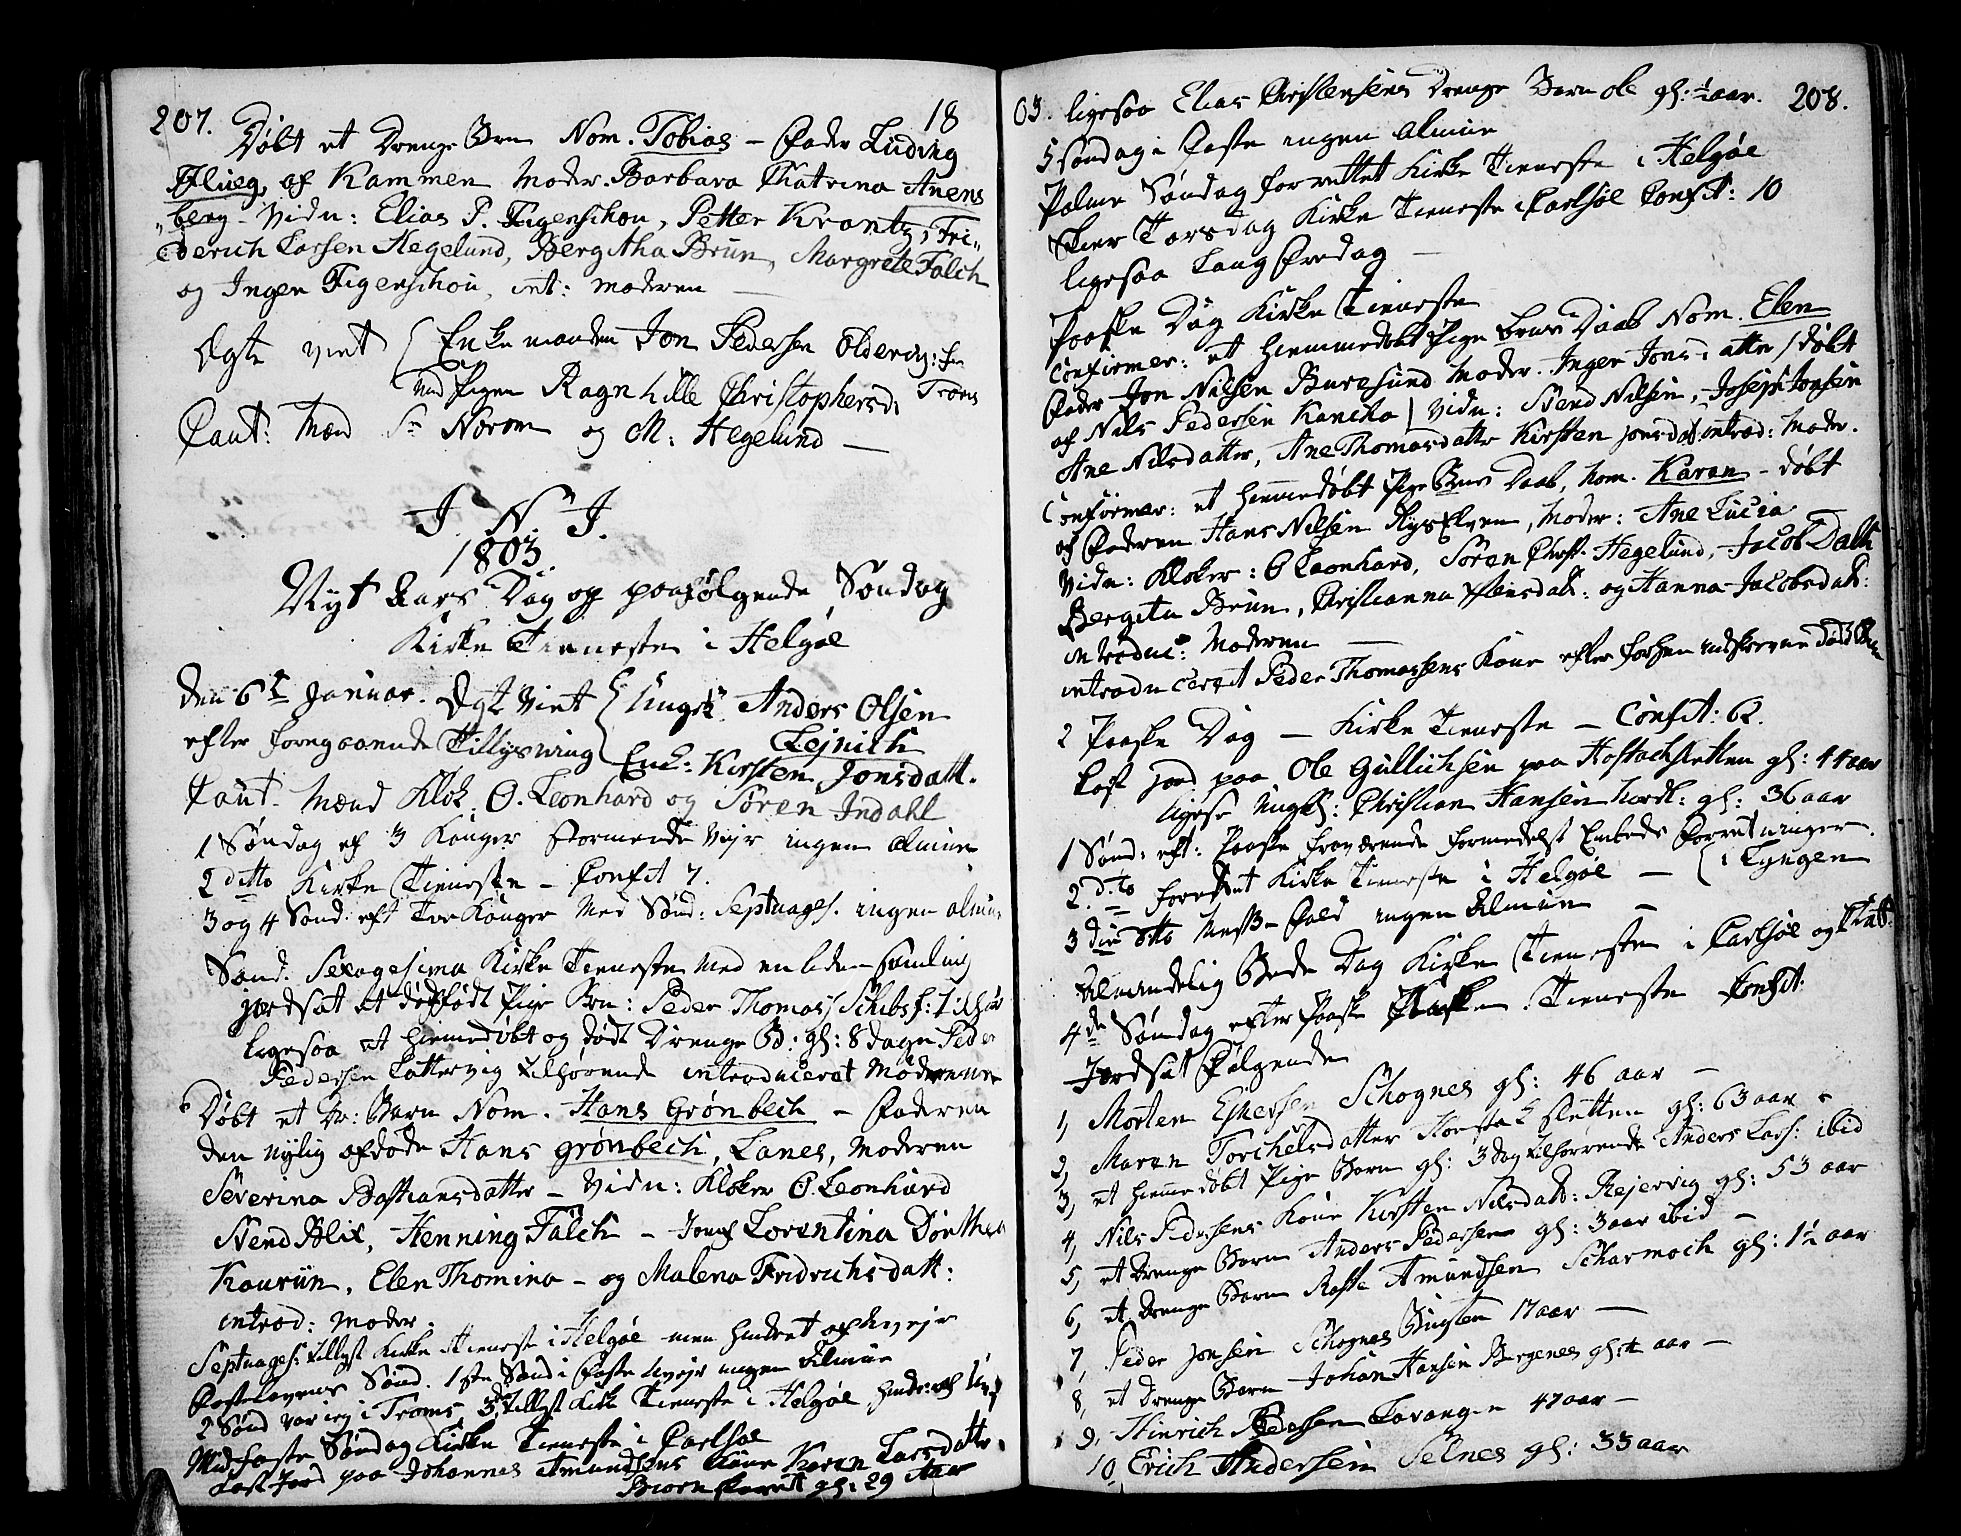 207. 18
Døbt et Drenge Brn Nom. Tobias - Fader Ludvig
Flueg, af Kammen Moder. Barbara Chatrina Anens
berg - Vidn: Elias P. Figenschou, Petter Krantz, Fri-
derich Larsen Hegelund, Bergitha Brun, Margrete Falch
og Inger Figenschou, int: Moderen
Egte viet Enkemanden Jon Pedersen Oldervig:
med Pigen Ragnhille Christophersd.
Caut: Mænd Sr Norom og M: Hegelund
I. N. I.
1803.
Nyt Aars Dag og paafølgende Søndag
Kirke Tieneste i Helgøe
den 6te Januar. Egt. Viet Ungk. Anders Olsen
Lejnich
efter foregaaende Tillysning Enk: Kirsten Jonsdatt.
Caut. Mænd Klok. O. Leonhard og Sören Indahl
1 Søndag ef 3 Konger Stormende Vejr ingen Almue
2 ditto Kirke Tieneste - Confit 7.
3 og 4 Sønd. eft Tre Konger med Sønd: Septuages. ingen Almue
Sønd. Sexagesima Kirke Tieneste med en liden Samling
jordsat et dødfødt Pige Brn: Peder Thomas
ligesaa et hiemedøbt og dødt Drenge B: gl: 8 dage Peder
Pedersen Lattervig tilhørende introduceret Mødrene
Døbt et Dr: Barn Nom. Hans Grønbech - Faderen
den nylig afdøde Hans Grønbech, Lanes, Moderen
Severina Bastiansdatter - Vidn: Kloker O. Leonhard
Svend Blix, Henning Falch - Jomf Lorentina Dorthea
Kouruin, Elen Thomina - og Malena Fridrichsdatt:
introd: Moder.
Septuages: tillyst Kirke Tieneste i Helgøe men hindret af Uvejr
Fastelavens Sønd. 1ste Sønd i Faste Uvejr ingen Almue
2 Sønd var jeg i Troms 3de tillyst Kirke Tieneste i Helgøe, hindr: af
Midfaste Søndag Kirke Tieneste i Carlsøe
Kast Jord paa Johannes Amundsens Kone Karen Larsdatter
gl: 29 Aar
03. ligesaa Elias Christensens Drenge Barn Ole gl: ½ aar. 208.
5 Søndag i Faste ingen Almue
Palme Søndag forrettet Kirke Tieneste i Helgøe
Skier Torsdag Kirke Tieneste i Carlsøe Confit: 10
ligesaa Lang Fredag
Paaske Dag Kirke Tieneste
Confirmer: et hiemmedøbt Pige Brns Daab Nom. Elen
Fader Jon Nilsen Buresund Moder. Inger Jonsdatter / døbt
af Nils Pedersen / Vidn: Svend Nilsen, Joseph Jonsen
Ane Nilsdatter, Ane Thomasdatter Kirsten Jonsdat. introd: Moder.
Confirmer: et hiemmedøbt Pige Brns Daab, Nom. Karen - døbt
af Faderen Hans Nilsen, Moder: Ane Lucia
Vidn: Kloker: O Leonhard, Sören Christ. Hegelund, Jacob Dahl
Bergita Brun, Christianna Jensdatt: og Hanna Jacobsdatt:
introduc: Moderen
introduceret Peder Thomassens Kone efter forhen indskrevne
2 Paaske Dag - Kirke Tieneste - Confit: 62.
Kast Jord paa Ole Gullichsen paa gl: 44 aar
ligesaa Ungk: Christian Hansen gl: 36 aar
1 Sønd: eft: Paaske fraværende formedelst Embeds Forretninger
i Lyngen
2. dito forrettet Kirke Tieneste i Helgøe
3 die ditto Mess-Fald ingen Almue
Almindelig Bede Dag Kirke Tieneste i Carlsøe og
4de Søndag efter Paaske Tieneste Confit:
Jordsat Følgende
1, Morten Eskersen Schognes gl: 46 aar
2, Maren Torchelsdatter gl: 63 aar
3, et hiemmedøbt Pige Barn gl: 3 dag tilhørende Anders Lars: ibid
4, Nils Pedersens Kone Kirsten Nilsdatt: Rejervig gl: 53 aar
5, et Drenge Barn Anders Pedersen gl: 3 aar ibid
6, et Drenge Barn Amundsen gl: 1½ aar
7, Peder Jonsen Schognes 17 aar
8, et Drenge Barn Johan Hansen aar
9, Hinrich Pedersen Lavangen 47 aar
10, Erich Andersen Selnes gl: 33 aar